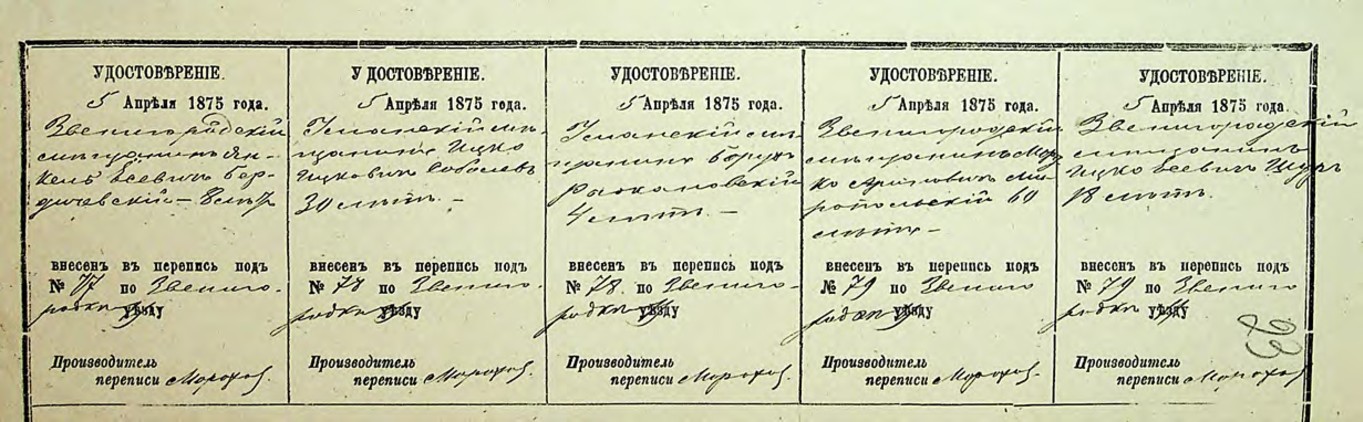 УДОСТОВѢРЕНІЕ.
5 Апрѣля 1875 года.
Звенигородскій
мѣщанинъ Ян-
кель Іосевичъ Бер-
дичевскій — 8 лѣтъ
внесенъ въ перепись подъ
№ 77 по Звениго-
родкѣ уѣзду
Производитель
переписи
УДОСТОВѢРЕНІЕ.
5 Апрѣля 1875 года.
Уманскій мѣ-
щанинъ Ицко
Ицковичъ Соболевъ
30 лѣтъ. —
внесенъ въ перепись подъ
№ 78 по Звениго-
родкѣ уѣзду
Производитель
переписи
УДОСТОВѢРЕНІЕ.
5 Апрѣля 1875 года.
Уманскій мѣ-
щанинъ Борухъ
4 лѣтъ. —
внесенъ въ перепись подъ
№ 78. по Звениго-
родкѣ уѣзду
Производитель
переписи
УДОСТОВѢРЕНІЕ.
5 Апрѣля 1875 года.
Звенигородскій
мѣщанинъ Мор-
ко Ми-
ропольскій
лѣтъ —
внесенъ въ перепись подъ
№ 79 по Звениго
родкѣ уѣзду
Производитель
переписи
УДОСТОВѢРЕНІЕ.
5 Апрѣля 1875 года.
Звенигородскій
мѣщанинъ
Ицко Іосевичъ
18 лѣтъ.
внесенъ въ перепись подъ
№ 79 по Звениго
родкѣ уѣзду
Производитель
переписи